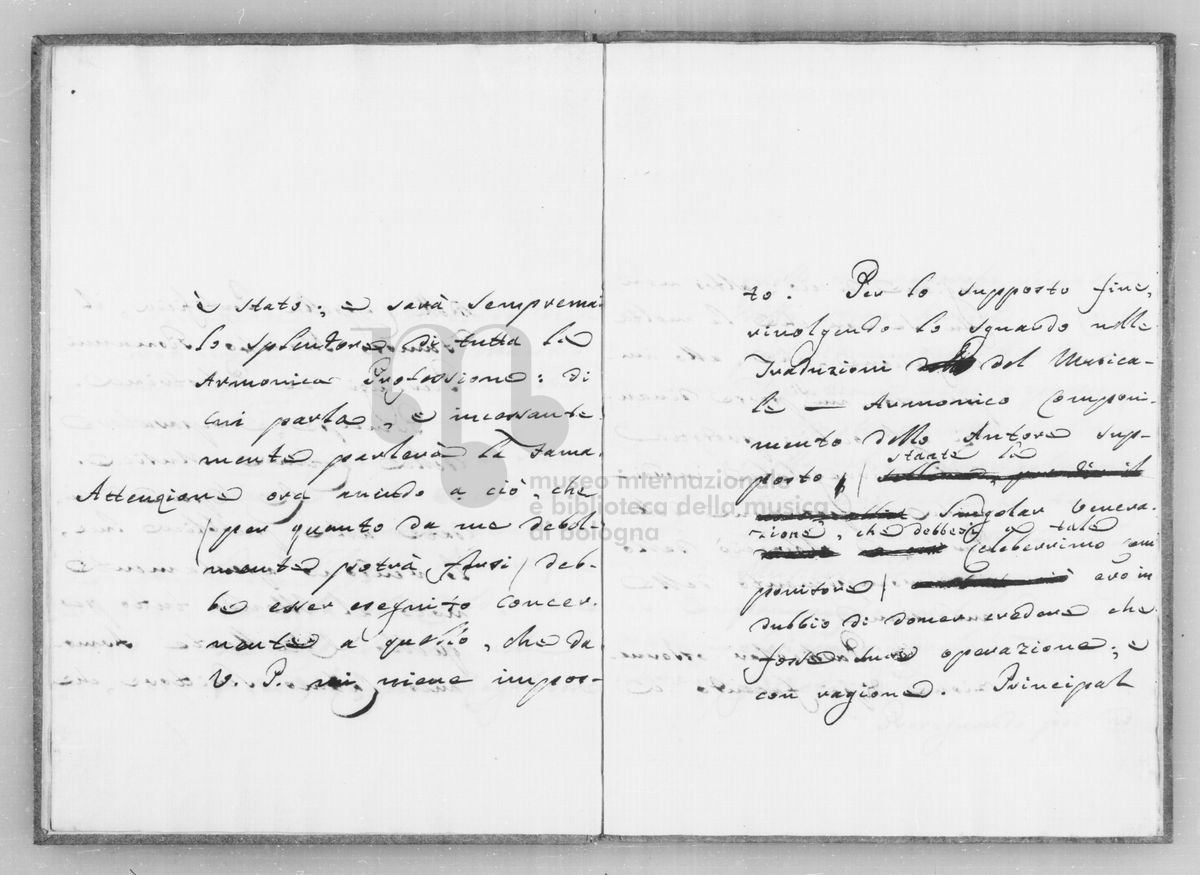 è stato, e sarà semprema
lo splendore di tutta la
Armonica Professione: di
cui parla, e incessante
mente parlerà la fama.
Attenzione ora avendo a ciò, che
(per quanto da me debol-
mente potrà farsi) deb-
be esser eseguito concer-
nente a quello, che da
V. P. mi viene impos-
to. Per lo supposto fine,
rivolgendo lo sguardo nelle
Traduzioni del Musica-
le — Armonico Componi-
mento dello Autore sup-
stante la
posto /
Singolar Venera-
zione, che debbesi a tale
Celeberrimo Com
positore / ero in
dubbio di dover vedere che
fosse operazione; e
con ragione. Principal
museo internazionale
e biblioteca della musica
di bologna